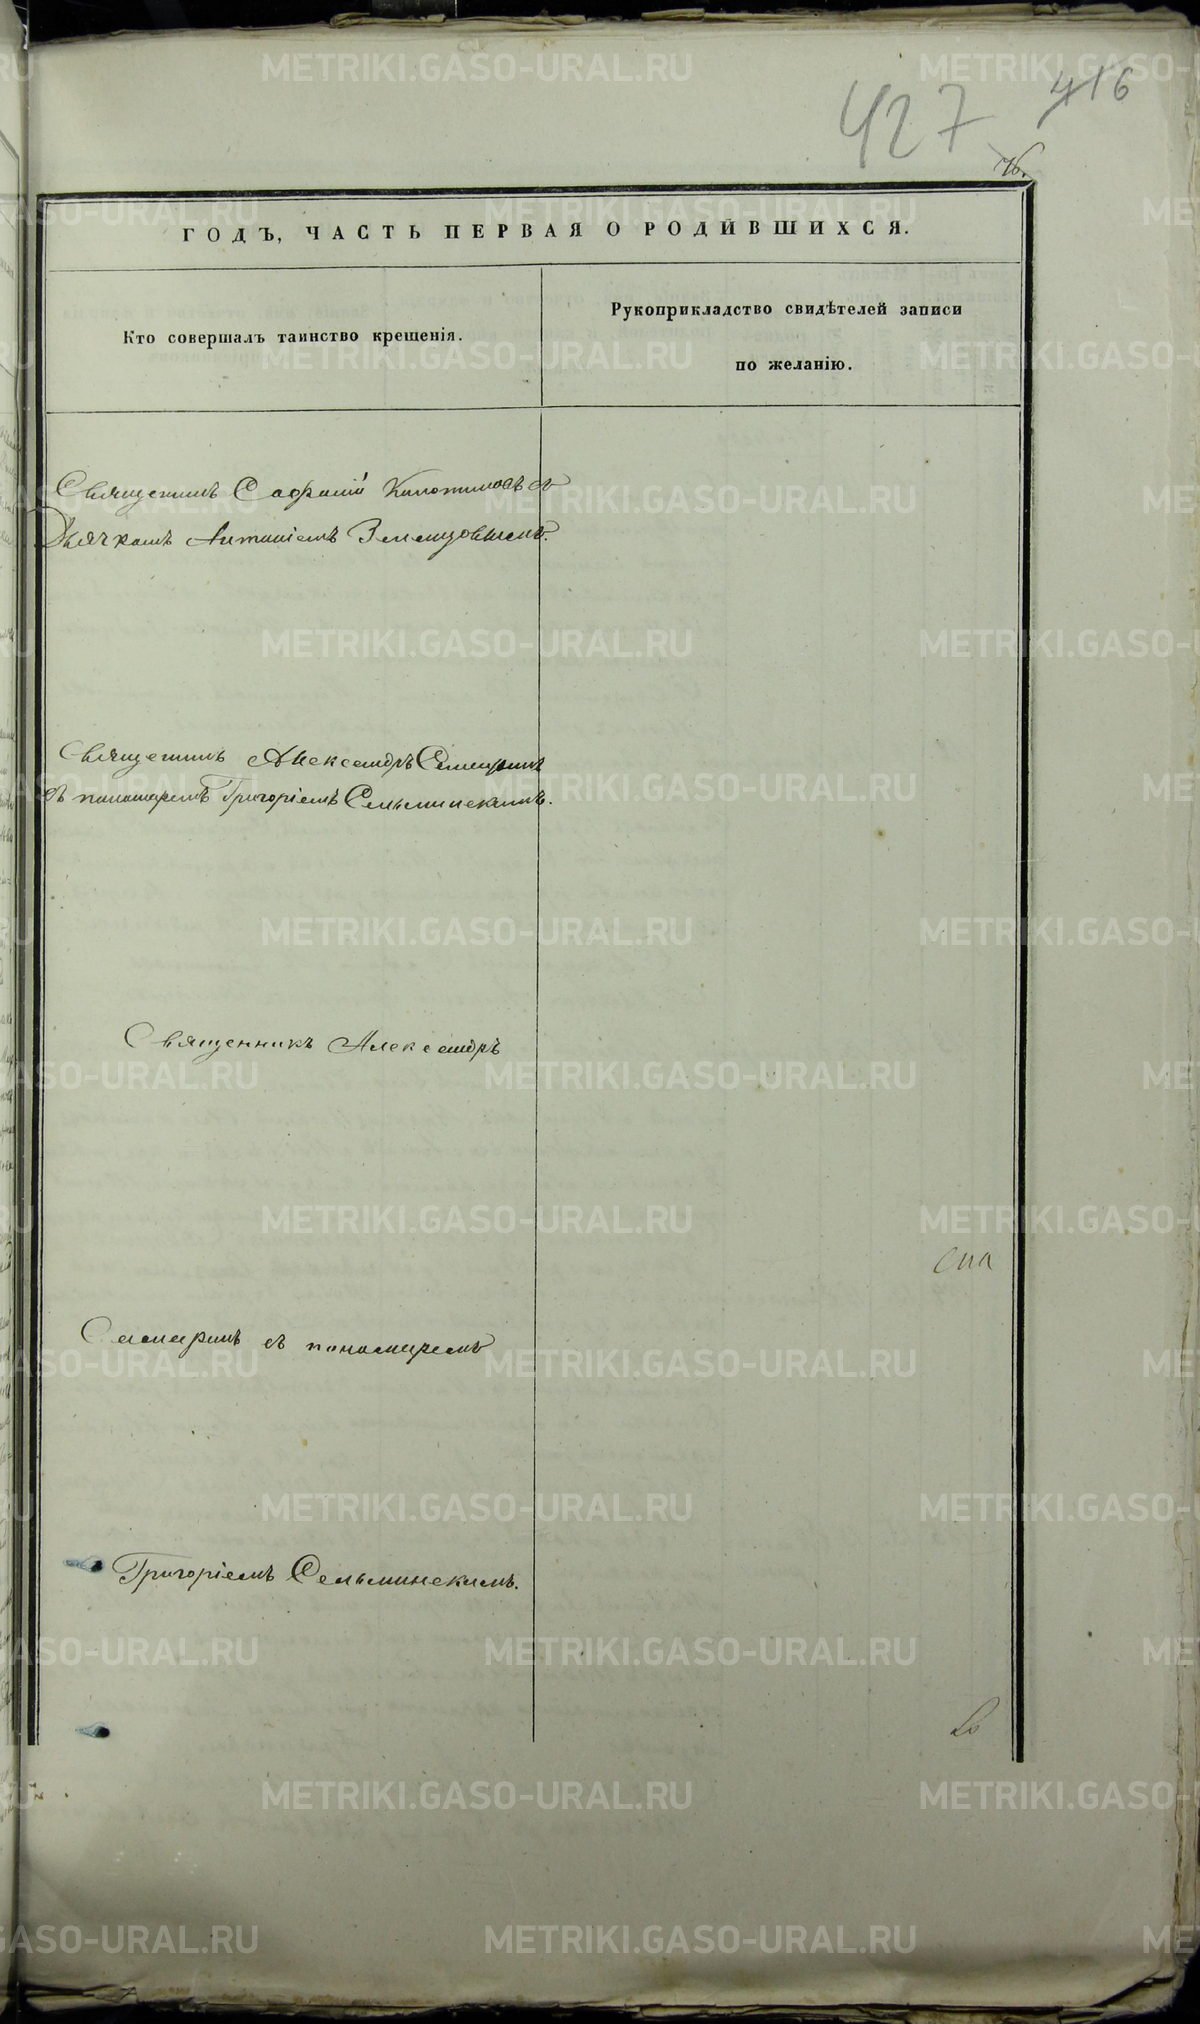 416
427
76.
ГОДЪ, ЧАСТЬ ПЕРВАЯ О РОДИВШИХСЯ.
Кто совершалъ таинство крещенія.
Рукоприкладство свидѣтелей записи
по желанію.
Священникъ съ
Дьячкомъ Антоніемъ Земляницынымъ.
Священникъ Александръ
съ пономаремъ Григоріемъ Сельминскимъ.
Священникъ Александръ
съ пономаремъ
спа
Григоріемъ Сельминскимъ.
METRIKI.GASO-URAL.RU